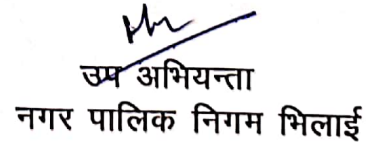 उप अभियन्ता
नगर पालिक निगम भिलाई